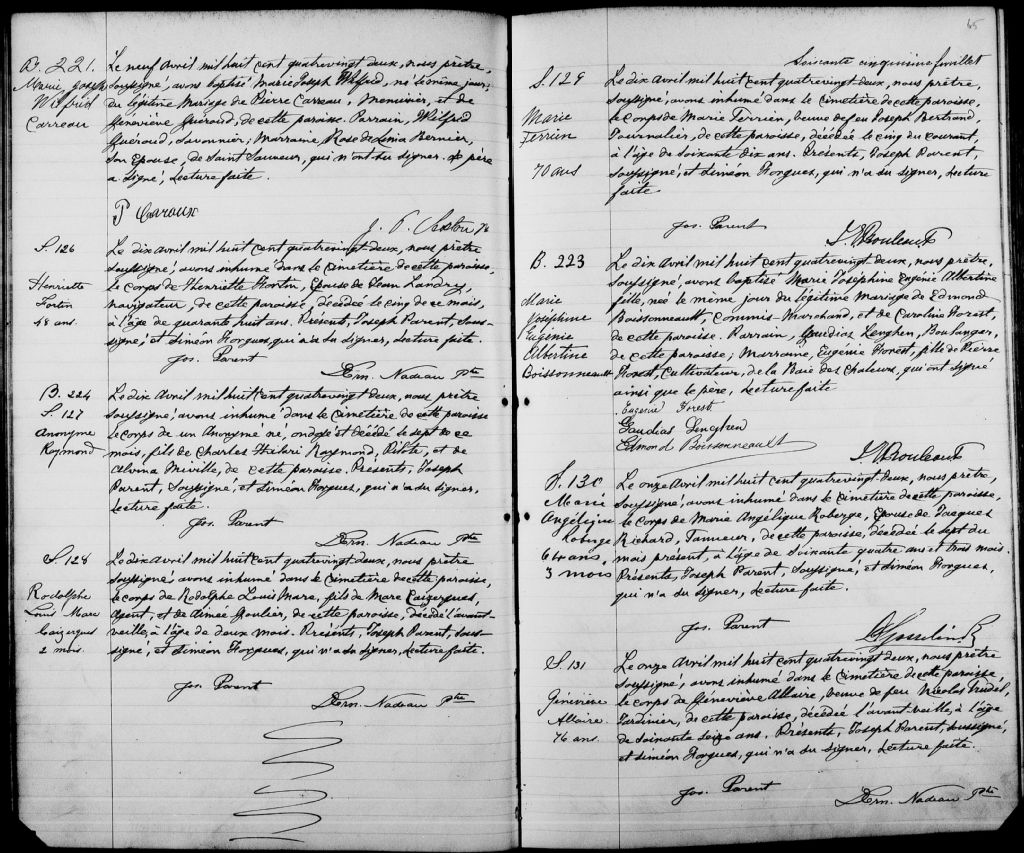 B. 221.
Marie Joseph
Wilfrid
Carreau
Le neuf Avril mil huit cent quatrevingt deux, nous prêtre,
soussigné, avons baptisé Marie Joseph Wilfrid, né le même jour,
du légitime Mariage de Pierre Carreau, Menuisier, et de
Geneviève Guéroud, de cette paroisse. Parrain, Wilfrid
Guéroud, Savonnier; Marraine, Rose de Lima Bernier,
Son épouse, de Saint Sauveur, qui n'ont su signer. Le père
a signé, Lecture faite.
P Caraux
S. 126
Henriette
Fortin
48 ans.
Le dix avril mil huit cent quatrevingt deux, nous prêtre
soussigné, avons inhumé dans le cimetière de cette paroisse,
le corps de Henriette Fortin, Epouse de Jean Landry,
navigateur, de cette paroisse, décédée le cinq de ce mois,
à l'âge de quarante huit ans. Présent, Joseph Parent, Sous-
signé, et Siméon Horgues, qui n'a su signer, Lecture faite.
Jos. Parent
Dern. Nadeau Ptre
B. 224
S. 127
Anonyme
Raymond
Le dix Avril mil huit cent quatrevingt deux, nous prêtre
soussigné, avons inhumé dans le Cimetière de cette paroisse
le corps de un Anonyme né, ondoyé et décédé le sept de ce
mois, fils de Charles Raymond, Pilote, et de
Alvina Miville, de cette paroisse. Présents, Joseph
Parent, Soussigné, et Siméon Horgues, qui n'a su signer,
Lecture faite.
Jos. Parent
Dern. Nadeau Ptre
S. 128
Rodolphe
Louis Marc
Caizergues
2 mois.
Le dix Avril mil huit cent quatrevingt deux, nous prêtre
Soussigné, avons inhumé dans le cimetière de cette paroisse,
le corps de Rodolphe Louis Marc, fils de Marc Caizergues,
Agent, et de Aimée Roulier, de cette paroisse, décédé l'avant-
veille, à l'âge de deux mois. Présents, Joseph Parent, Sous-
signé, et Siméon Horgues, qui n'a su signer, Lecture faite.
Jos. Parent
Dern. Nadeau Ptre
65
Soixante cinquième feuillet
S. 129
Marie
Terrien
70 ans
Le dix Avril mil huit cent quatrevingt deux, nous prêtre,
Soussigné, avons inhumé dans le cimetière de cette paroisse,
le corps de Marie Terrien, veuve de feu Joseph Bertrand,
Journalier, de cette paroisse, décédée le cinq du courant,
à l'âge de Soixante Dix ans. Présents, Joseph Parent,
Soussigné, et Siméon Horgues, qui n'a su signer, Lecture
faite.
Jos. Parent
B. 223
Marie
Joséphine
Eugénie
Albertine
Boissonneault
Le dix Avril mil huit cent quatrevingt deux, nous prêtre,
Soussigné, avons baptisé Marie Joséphine Eugénie Albertine
fille, née le même jour du légitime Mariage de Edmond
Boissonneault, Commis-Marchand, et de Caroline Forest,
de cette paroisse. Parrain, Gaudias Lenghen, Boulanger,
de cette paroisse; Marraine, Eugénie Forest, fille de Pierre
Forest, Cultivateur, de la Baie des Chaleurs, qui ont signé
ainsi que le père, Lecture faite
Eugénie Forest
Gaudias Lenghen
Edmond Boissonneault
S. 130
Marie
Angélique
Roberge
64 ans,
3 mois
Le onze Avril mil huit cent quatrevingt deux, nous prêtre,
Soussigné, avons inhumé dans le cimetière de cette paroisse,
le corps de Marie Angélique Roberge, Epouse de Jacques
Richard, Tanneur, de cette paroisse, décédée le sept du
mois présent, à l'âge de Soixante quatre ans et trois mois.
Présents, Joseph Parent, Soussigné, et Siméon Horgues,
qui n'a su signer, Lecture faite.
Jos. Parent
S. 131
Geneviève
Allaire.
76 ans.
Le onze Avril mil huit cent quatrevingt deux, nous prêtre
Soussigné, avons inhumé dans le cimetière de cette paroisse,
le corps de Geneviève Allaire, veuve de feu Nicolas Trudel,
Jardinier, de cette paroisse, décédée l'avant-veille, à l'âge
de Soixante Seize ans. Présents, Joseph Parent, Soussigné,
et Siméon Horgues, qui n'a su signer, Lecture faite.
Jos. Parent
Dern. Nadeau Ptre